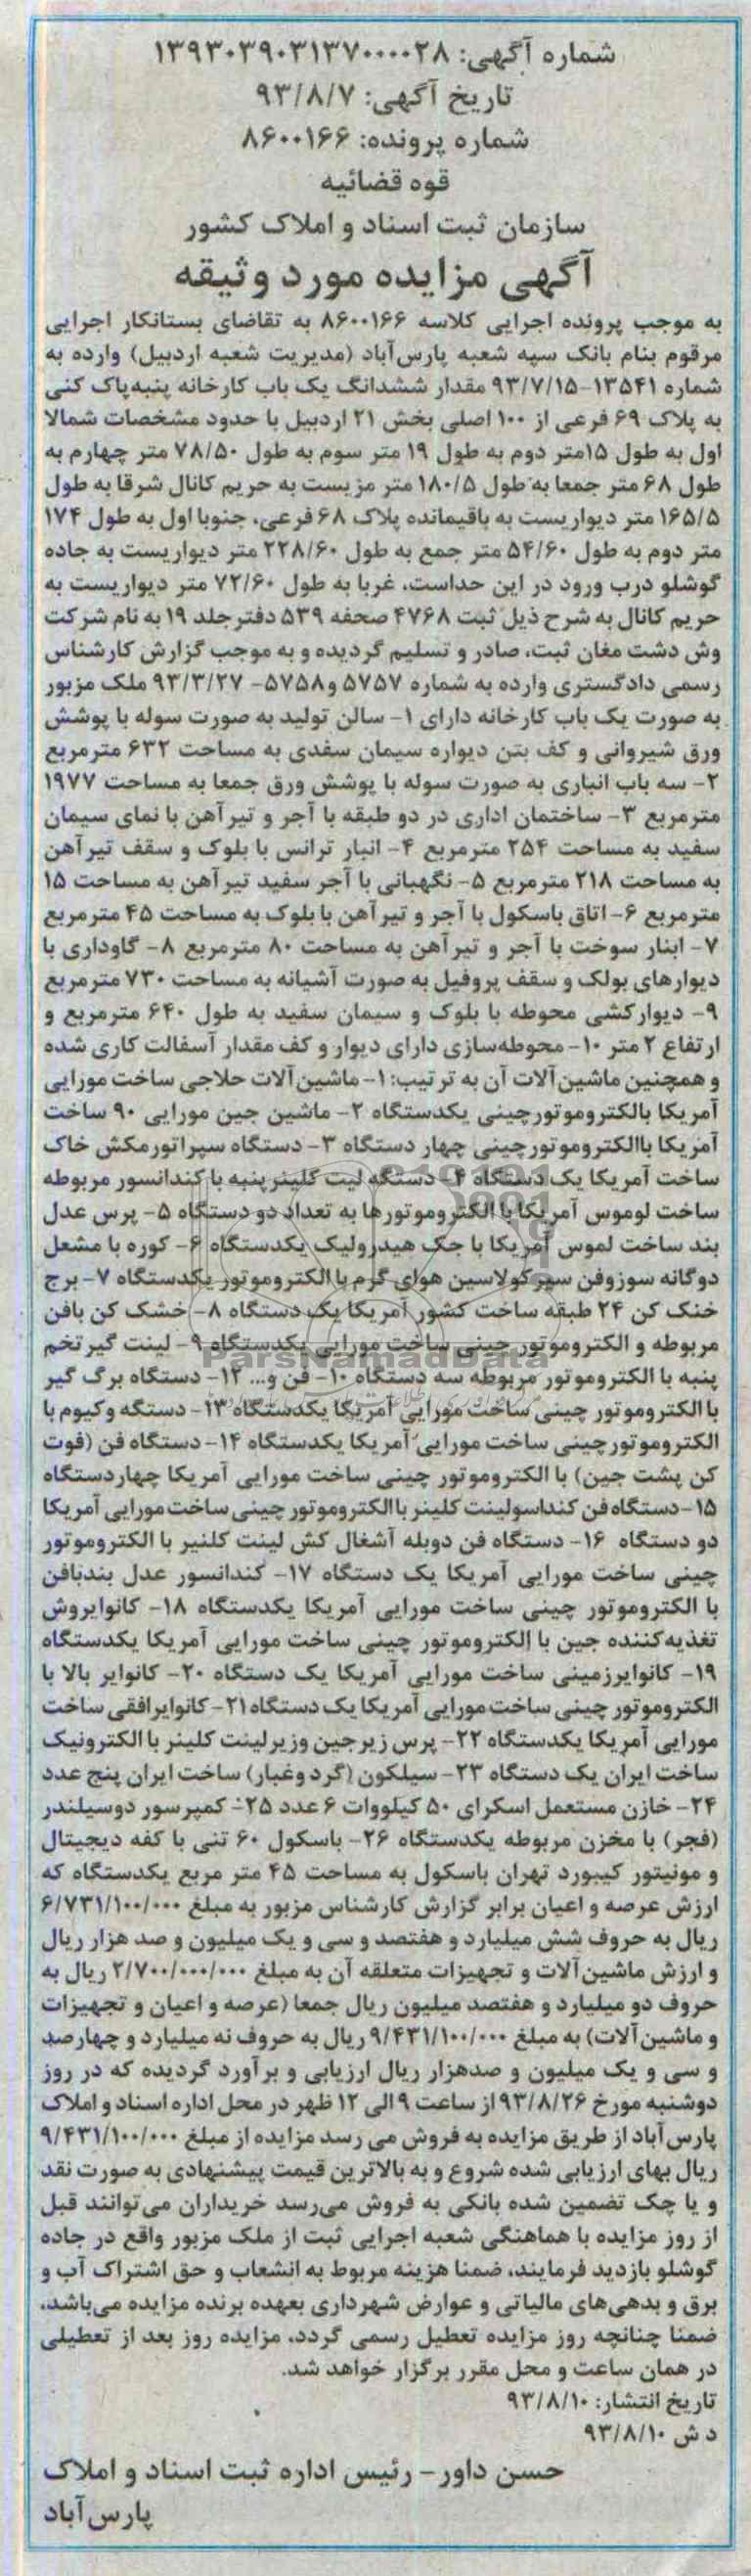 شماره آگهی: ۱۳۹۳۰۳۹۰۳۱۳۷۰۰۰۰۲۸
تاریخ آگهی: ۹۳/۸/۷
شماره پرونده: ۸۶۰۰۱۶۶
قوه قضائیه
سازمان ثبت اسناد و املاک کشور
آگهی مزایده مورد وثیقه
به موجب پرونده اجرایی کلاسه ۸۶۰۰۱۶۶ به تقاضای بستانکار اجرایی
مرقوم بنام بانک سپه شعبه پارس‌آباد (مدیریت شعبه اردبیل) وارده به
شماره ۱۳۵۴۱-۹۳/۷/۱۵ مقدار ششدانگ یک باب کارخانه پنبه‌پاک کنی
به پلاک ۶۹ فرعی از ۱۰۰ اصلی بخش ۲۱ اردبیل با حدود مشخصات شمالا
اول به طول ۱۵متر دوم به طول ۱۹ متر سوم به طول ۷۸/۵۰ متر چهارم به
طول ۶۸ متر جمعا به طول ۱۸۰/۵ متر مزیست به حریم کانال شرقا به طول
۱۶۵/۵ متر دیواریست به باقیمانده پلاک ۶۸ فرعی، جنوبا اول به طول ۱۷۴
متر دوم به طول ۵۴/۶۰ متر جمع به طول ۲۲۸/۶۰ متر دیواریست به جاده
گوشلو درب ورود در این حداست، غربا به طول ۷۲/۶۰ متر دیواریست به
حریم کانال به شرح ذیل ثبت ۴۷۶۸ صحفه ۵۳۹ دفترجلد ۱۹ به نام شرکت
وش دشت مغان ثبت، صادر و تسلیم گردیده و به موجب گزارش کارشناس
رسمی دادگستری وارده به شماره ۵۷۵۷ و۵۷۵۸- ۹۳/۳/۲۷ ملک مزبور
به صورت یک باب کارخانه دارای ۱- سالن تولید به صورت سوله با پوشش
ورق شیروانی و کف بتن دیواره سیمان سفدی به مساحت ۶۳۲ مترمربع
۲- سه باب انباری به صورت سوله با پوشش ورق جمعا به مساحت ۱۹۷۷
مترمربع ۳- ساختمان اداری در دو طبقه با آجر و تیرآهن با نمای سیمان
سفید به مساحت ۲۵۴ مترمربع ۴- انبار ترانس با بلوک و سقف تیرآهن
به مساحت ۲۱۸ مترمربع ۵- نگهبانی با آجر سفید تیرآهن به مساحت ۱۵
مترمربع ۶- اتاق باسکول با آجر و تیرآهن با بلوک به مساحت ۴۵ مترمربع
۷- ابنار سوخت با آجر و تیرآهن به مساحت ۸۰ مترمربع ۸- گاوداری با
دیوارهای بولک و سقف پروفیل به صورت آشیانه به مساحت ۷۳۰ مترمربع
۹- دیوارکشی محوطه با بلوک و سیمان سفید به طول ۶۴۰ مترمربع و
ارتفاع ۲ متر ۱۰- محوطه‌سازی دارای دیوار و کف مقدار آسفالت کاری شده
و همچنین ماشین‌آلات آن به ترتیب: ۱- ماشین‌آلات حلاجی ساخت مورایی
آمریکا باالکتروموتورچینی یکدستگاه ۲- ماشین جین مورایی ۹۰ ساخت
آمریکا باالکتروموتورچینی چهار دستگاه ۳- دستگاه سپراتور مکش خاک
ساخت آمریکا یک دستگاه ۴- دستگه لیت کلینرپنبه با کندانسور مربوطه
ساخت لوموس آمریکا با الکتروموتورها به تعداد دو دستگاه ۵- پرس عدل
بند ساخت لموس آمریکا با جک هیدرولیک یکدستگاه ۶- کوره با مشعل
دوگانه سوزوفن سیرکولاسین هوای گرم با الکتروموتور یکدستگاه ۷- برج
خنک کن ۲۴ طبقه ساخت کشور آمریکا یک دستگاه ۸- خشک کن بافن
مربوطه و الکتروموتور چینی ساخت مورایی یکدستگاه ۹- لینت گیر تخم
پنبه با الکتروموتور مربوطه سه دستگاه ۱۰- فن و... ۱۲- دستگاه برگ گیر
با الکتروموتور چینی ساخت مورایی آمریکا یکدستگاه ۱۳- دستگه وکیوم با
الکتروموتورچینی ساخت مورایی آمریکا یکدستگاه ۱۴- دستگاه فن (فوت
کن پشت جین) با الکتروموتور چینی ساخت مورایی آمریکا چهاردستگاه
۱۵- دستگاه فن کنداسولینت کلینر باالکتروموتور چینی ساخت مورایی آمریکا
دو دستگاه ۱۶- دستگاه فن دوبله آشغال کش لینت کلنیر با الکتروموتور
چینی ساخت مورایی آمریکا یک دستگاه ۱۷- کندانسور عدل بندبافن
با الکتروموتور چینی ساخت مورایی آمریکا یکدستگاه ۱۸- کانوایروش
تغذیه‌کننده جین با الکتروموتور چینی ساخت مورایی آمریکا یکدستگاه
۱۹- کانوایرزمینی ساخت مورایی آمریکا یک دستگاه ۲۰- کانوایر بالا با
الکتروموتور چینی ساخت مورایی آمریکا یک دستگاه ۲۱- کانوایرافقی ساخت
مورایی آمریکا یکدستگاه ۲۲- پرس زیرجین وزیرلینت کلینر با الکترونیک
ساخت ایران یک دستگاه ۲۳- سیلکون (گرد وغبار) ساخت ایران پنج عدد
۲۴- خازن مستعمل اسکرای ۵۰ کیلووات ۶ عدد ۲۵- کمپرسور دوسیلندر
(فجر) با مخزن مربوطه یکدستگاه ۲۶- باسکول ۶۰ تنی با کفه دیجیتال
و مونیتور کیبورد تهران باسکول به مساحت ۴۵ متر مربع یکدستگاه که
ارزش عرصه و اعیان برابر گزارش کارشناس مزبور به مبلغ ۶/۷۳۱/۱۰۰/۰۰۰
ریال به حروف شش میلیارد و هفتصد و سی و یک میلیون و صد هزار ریال
و ارزش ماشین‌آلات و تجهیزات متعلقه آن به مبلغ ۲/۷۰۰/۰۰۰/۰۰۰ ریال به
حروف دو میلیارد و هفتصد میلیون ریال جمعا (عرصه و اعیان و تجهیزات
و ماشین‌آلات) به مبلغ ۹/۴۳۱/۱۰۰/۰۰۰ ریال به حروف نه میلیارد و چهارصد
و سی و یک میلیون و صدهزار ریال ارزیابی و برآورد گردیده که در روز
دوشنبه مورخ ۹۳/۸/۲۶ از ساعت ۹ الی ۱۲ ظهر در محل اداره اسناد و املاک
پارس‌آباد از طریق مزایده به فروش می رسد مزایده از مبلغ ۹/۴۳۱/۱۰۰/۰۰۰
ریال بهای ارزیابی شده شروع و به بالاترین قیمت پیشنهادی به صورت نقد
و یا چک تضمین شده بانکی به فروش می‌رسد خریداران می‌توانند قبل
از روز مزایده با هماهنگی شعبه اجرایی ثبت از ملک مزبور واقع در جاده
گوشلو بازدید فرمایند، ضمنا هزینه مربوط به انشعاب و حق اشتراک آب و
برق و بدهی‌های مالیاتی و عوارض شهرداری بعهده برنده مزایده می‌باشد.
ضمنا چنانچه روز مزایده تعطیل رسمی گردد، مزایده روز بعد از تعطیلی
در همان ساعت و محل مقرر برگزار خواهد شد.
تاریخ انتشار: ۹۳/۸/۱۰
د ش ۹۳/۸/۱۰
حسن داور- رئیس اداره ثبت اسناد و املاک
پارس‌آباد
ParsNamadData